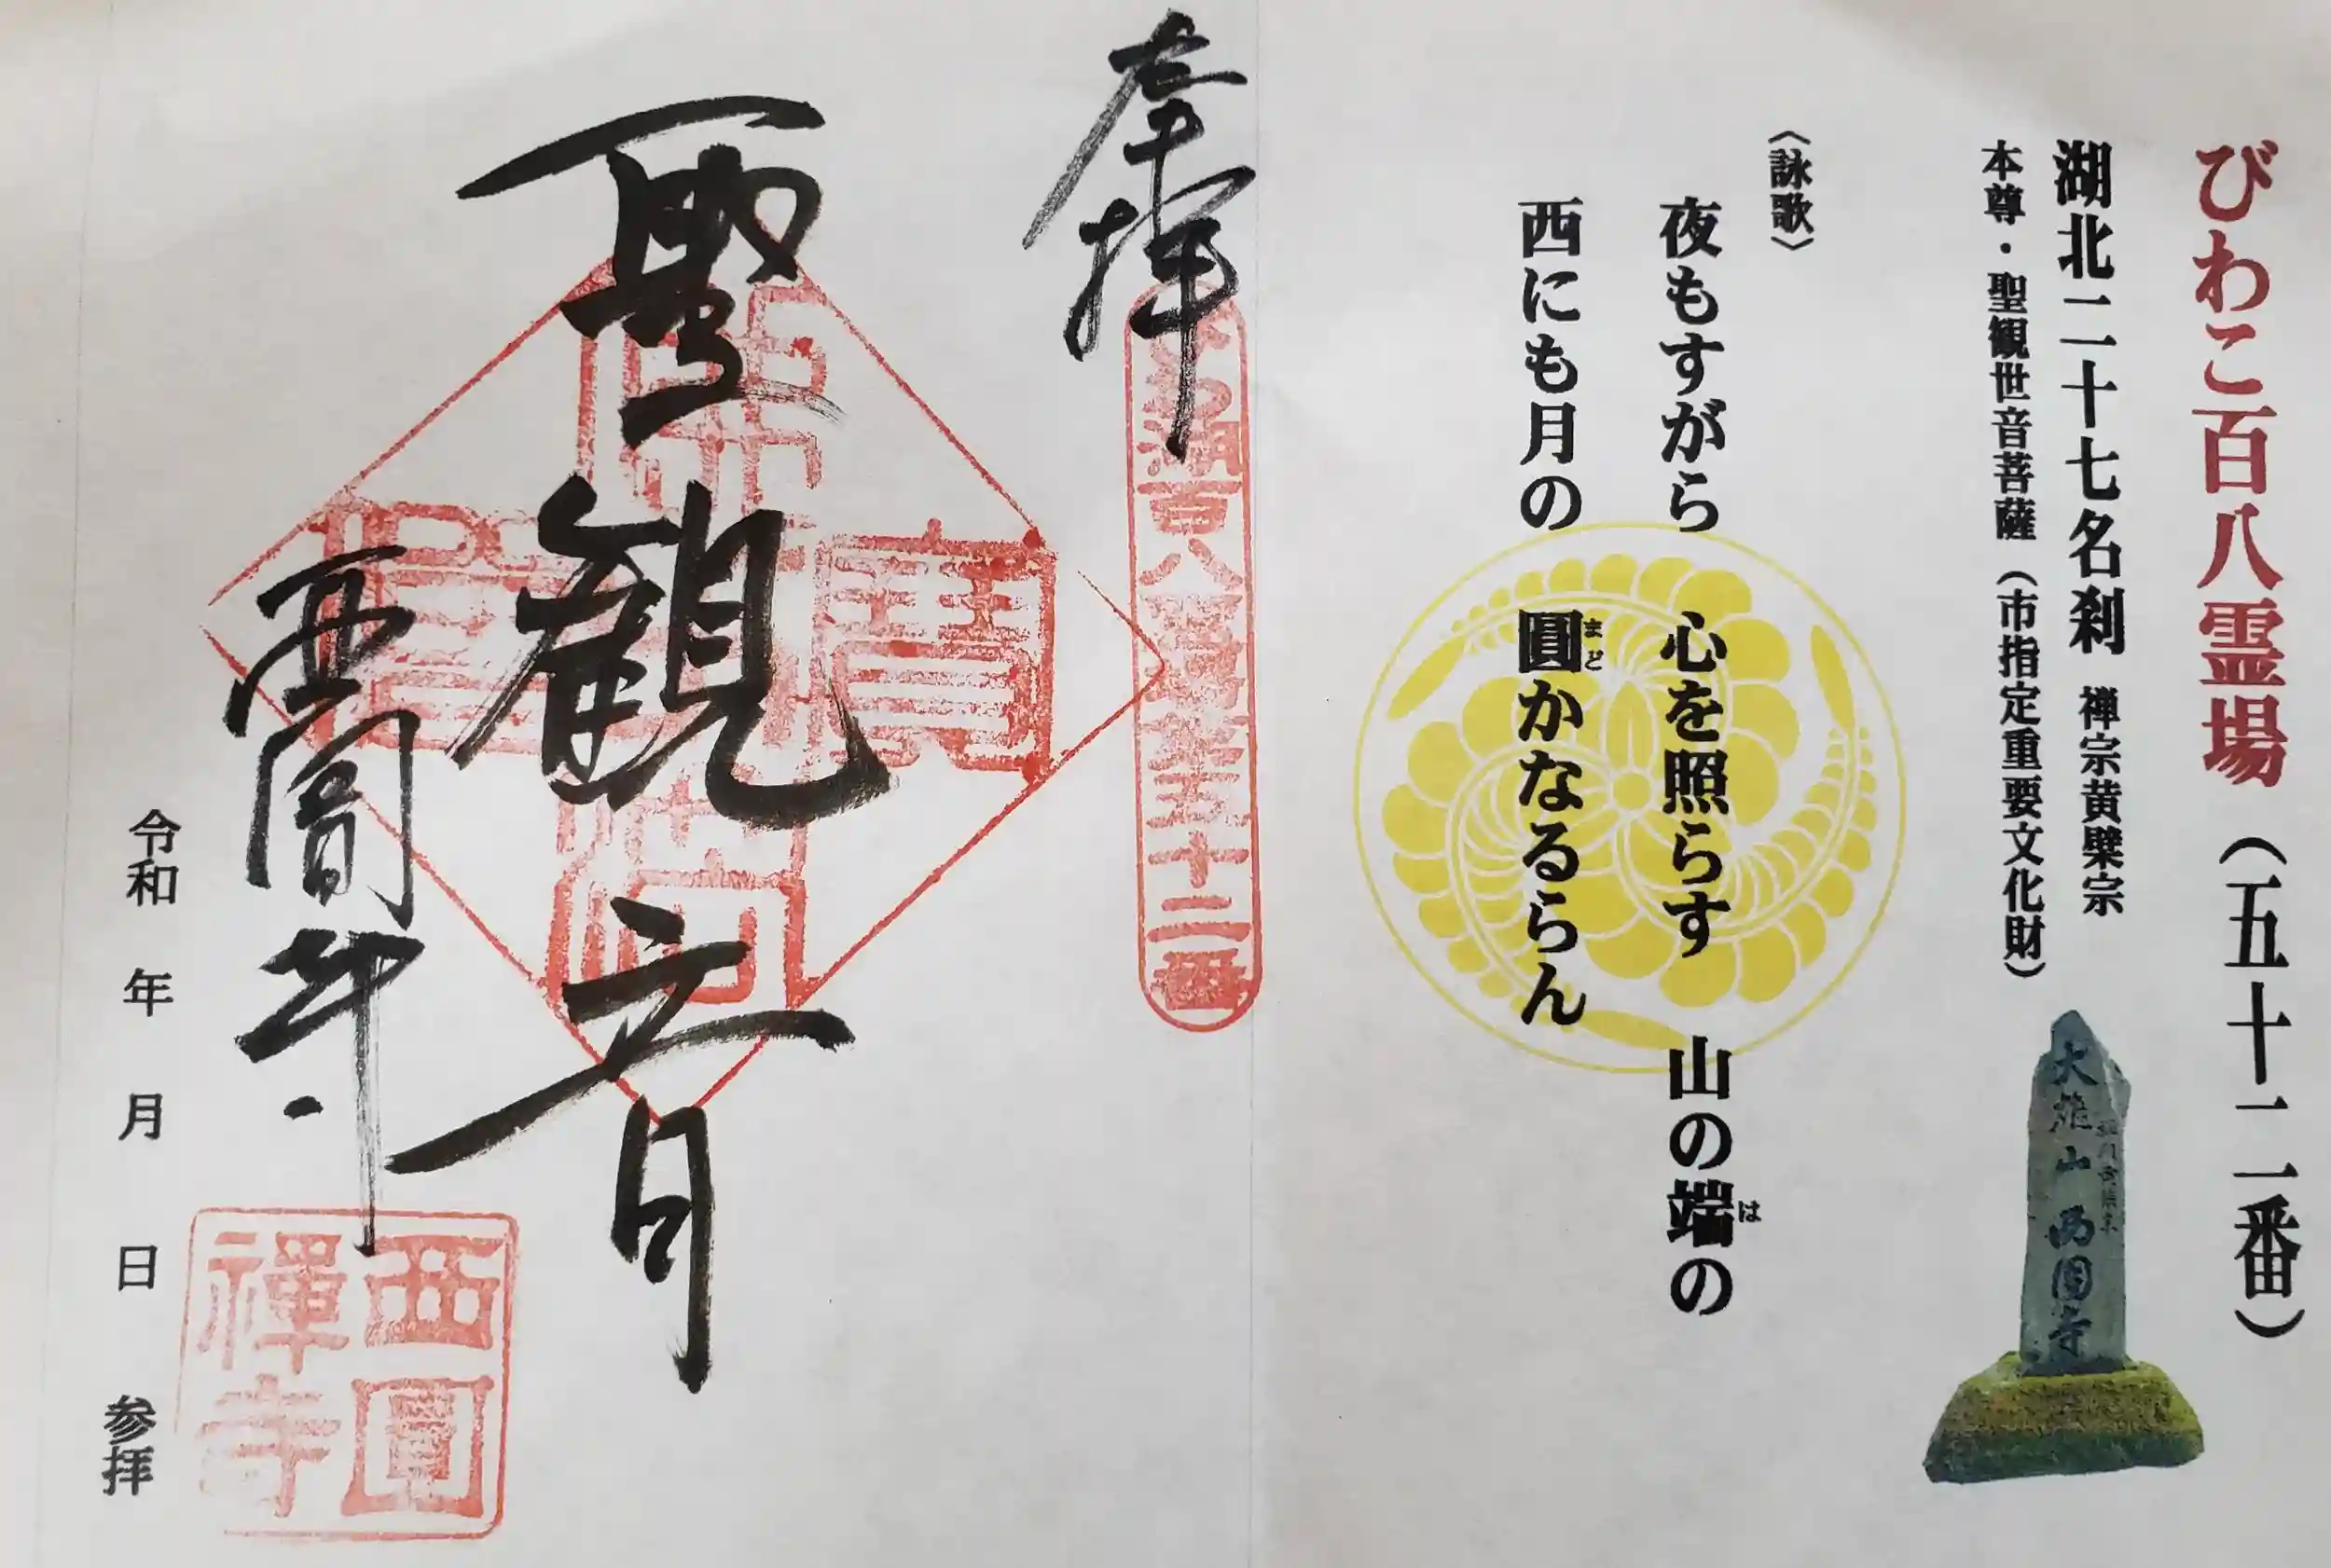 びわこ百八霊場（五十二番）
湖北二十七名刹　禅宗黄檗宗
本尊・聖観世音菩薩（市指定重要文化財）
大雄山西圓寺
〈詠歌〉
夜もすがら　心を照らす　山の端の
は
西にも月の　圓かなるらん
まど
奉拝
びわ湖百八霊場第五十二番
聖観音
佛法僧寶
西圓寺
西圓禅寺
令和　年　月　日　参拝